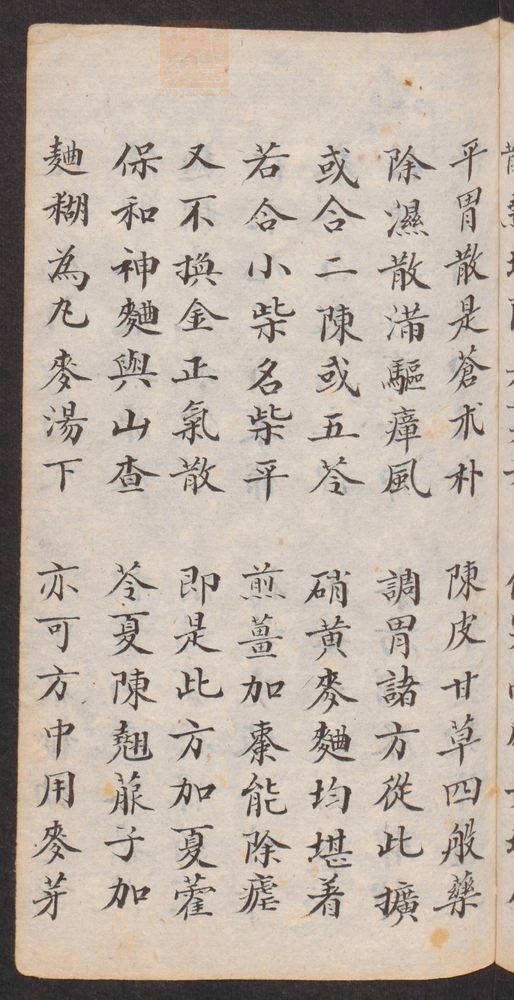 平胃散是蒼朮朴　陳皮甘草四般藥
除濕散滿驅瘴風　調胃諸方從此擴
或合二陳或五苓　硝黃麥麯均堪着
若合小柴名柴平　煎薑加棗能除瘧
又不換金正氣散　即是此方加夏藿
保和神麯與山查　苓夏陳翹菔子加
麯糊為丸麥湯下　亦可方中用麥芽